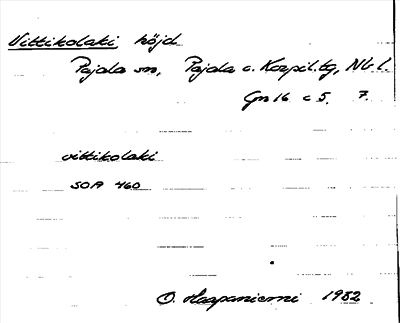 Vittikolaki höjd
Pajala sn, Pajala o. Korpil. tg, Nb l.
Gn 16 c 5. 7.
vittikolaki
SOA 460
O. Haapaniemi 1982